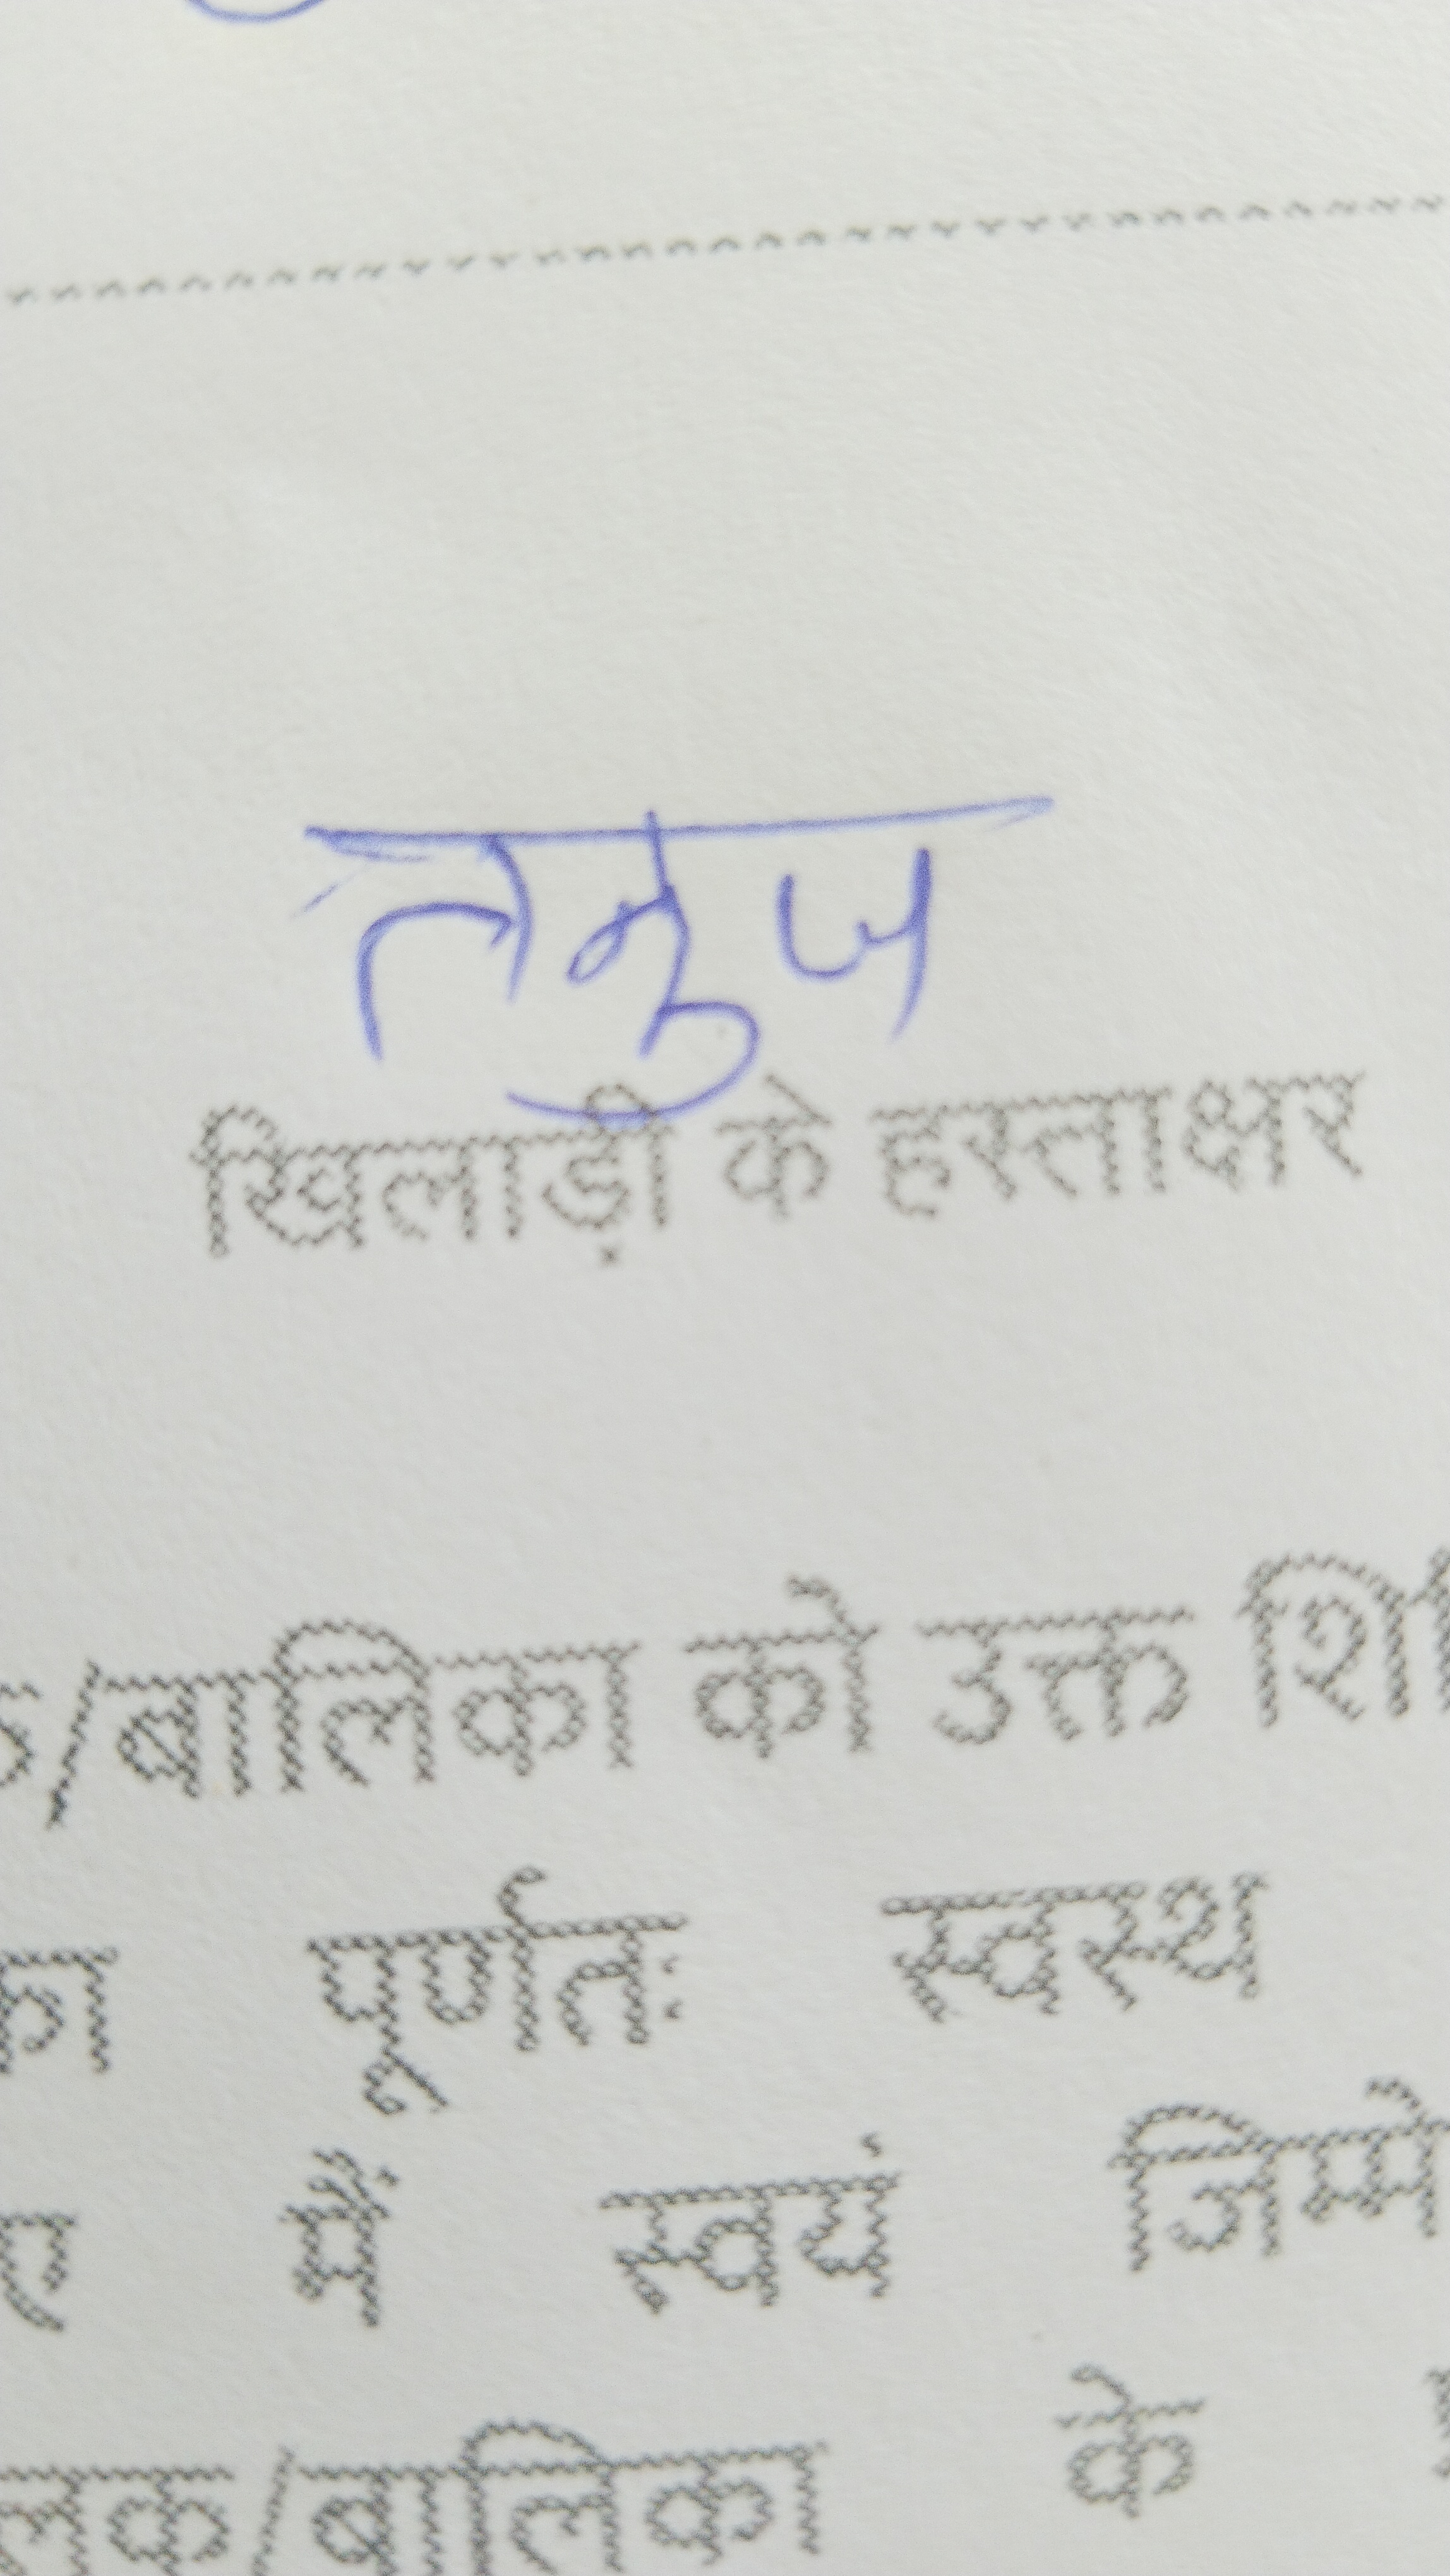 तनुज
खिलाड़ी के हस्ताक्षर
/बालिका को उक्त
का पूर्णतः स्वस्थ
मैं स्वयं
/बालिका के